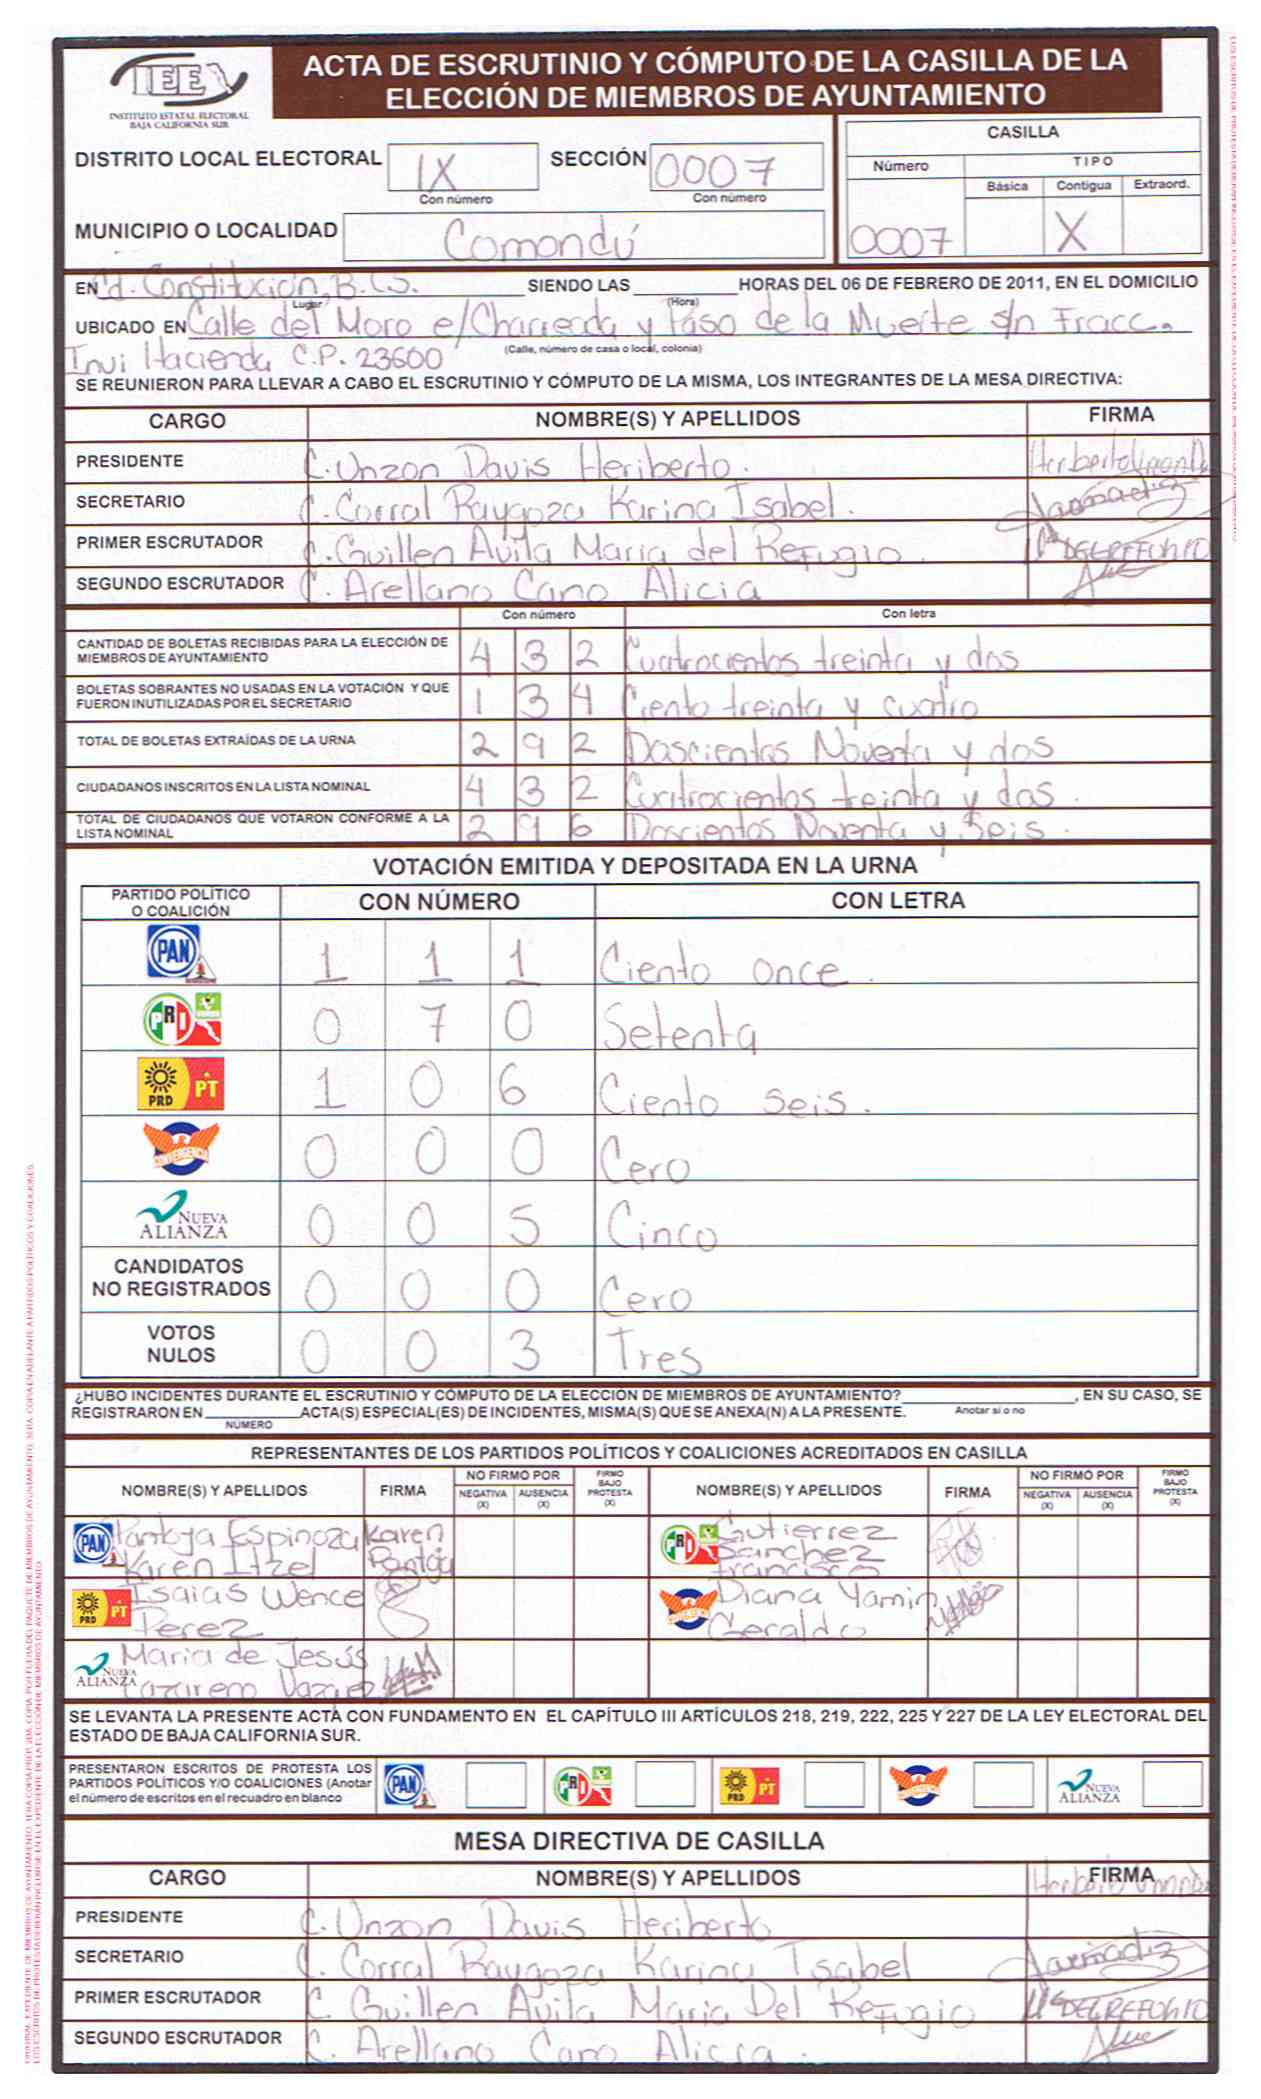 IEE
INSTITUTO ESTATAL ELECTORAL
BAJA CALIFORNIA SUR
ACTA DE ESCRUTINIO Y CÓMPUTO DE LA CASILLA DE LA
ELECCIÓN DE MIEMBROS DE AYUNTAMIENTO
DISTRITO LOCAL ELECTORAL IX SECCIÓN 0007
Con número Con número
MUNICIPIO O LOCALIDAD Comondú
CASILLA
Número TIPO
Básica Contigua Extraord.
0007 X
EN Cd. Constitución, B.C.S. SIENDO LAS HORAS DEL 06 DE FEBRERO DE 2011, EN EL DOMICILIO
Lugar (Hora)
UBICADO EN Calle del Moro e/Charrerda y Paso de la Muerte s/n Fracc.
(Calle, número de casa o local, colonia)
Invi Hacienda C.P. 23600
SE REUNIERON PARA LLEVAR A CABO EL ESCRUTINIO Y CÓMPUTO DE LA MISMA, LOS INTEGRANTES DE LA MESA DIRECTIVA:
CARGO NOMBRE(S) Y APELLIDOS FIRMA
PRESIDENTE C. Unzon Davis Heriberto.
SECRETARIO C. Corral Raygoza Karina Isabel.
PRIMER ESCRUTADOR C. Guillen Avila Maria del Refugio. Mª DEL REFUGIO
SEGUNDO ESCRUTADOR C. Arellano Cano Alicia
Con número Con letra
CANTIDAD DE BOLETAS RECIBIDAS PARA LA ELECCIÓN DE
MIEMBROS DE AYUNTAMIENTO 4 3 2 Cuatrocientos treinta y dos
BOLETAS SOBRANTES NO USADAS EN LA VOTACIÓN Y QUE
FUERON INUTILIZADAS POR EL SECRETARIO 1 3 4 Ciento treinta y cuatro
TOTAL DE BOLETAS EXTRAÍDAS DE LA URNA 2 9 2 Doscientos Noventa y dos
CIUDADANOS INSCRITOS EN LA LISTA NOMINAL 4 3 2 Cuatrocientos treinta y dos.
TOTAL DE CIUDADANOS QUE VOTARON CONFORME A LA
LISTA NOMINAL 2 9 6 Doscientos Noventa y Seis.
VOTACIÓN EMITIDA Y DEPOSITADA EN LA URNA
PARTIDO POLÍTICO
O COALICIÓN CON NÚMERO CON LETRA
PAN 1 1 1 Ciento once.
PRI 0 7 0 Setenta
PRD PT 1 0 6 Ciento seis.
CONVERGENCIA 0 0 0 Cero
NUEVA ALIANZA 0 0 5 Cinco
CANDIDATOS
NO REGISTRADOS 0 0 0 Cero
VOTOS
NULOS 0 0 3 Tres
¿HUBO INCIDENTES DURANTE EL ESCRUTINIO Y CÓMPUTO DE LA ELECCIÓN DE MIEMBROS DE AYUNTAMIENTO? , EN SU CASO, SE
REGISTRARON EN ACTA(S) ESPECIAL(ES) DE INCIDENTES, MISMA(S) QUE SE ANEXA(N) A LA PRESENTE. Anotar si o no
NÚMERO
REPRESENTANTES DE LOS PARTIDOS POLÍTICOS Y COALICIONES ACREDITADOS EN CASILLA
NOMBRE(S) Y APELLIDOS FIRMA NO FIRMÓ POR NEGATIVA (X) AUSENCIA (X) FIRMÓ BAJO PROTESTA (X) NOMBRE(S) Y APELLIDOS FIRMA NO FIRMÓ POR NEGATIVA (X) AUSENCIA (X) FIRMÓ BAJO PROTESTA (X)
PAN Pantoja Espinoza Karen PRI Gutierrez
Karen Itzel Pantoja Sanchez
Francisco
PRD PT Isaias Wence CONVERGENCIA Diana Yamin
Perez Geraldo
NUEVA ALIANZA Maria de Jesús
Cazareno Vazquez
SE LEVANTA LA PRESENTE ACTA CON FUNDAMENTO EN EL CAPÍTULO III ARTÍCULOS 218, 219, 222, 225 Y 227 DE LA LEY ELECTORAL DEL
ESTADO DE BAJA CALIFORNIA SUR.
PRESENTARON ESCRITOS DE PROTESTA LOS
PARTIDOS POLÍTICOS Y/O COALICIONES (Anotar
el número de escritos en el recuadro en blanco
PAN PRI PRD PT CONVERGENCIA NUEVA ALIANZA
MESA DIRECTIVA DE CASILLA
CARGO NOMBRE(S) Y APELLIDOS FIRMA
PRESIDENTE C. Unzon Davis Heriberto
SECRETARIO C. Corral Raygoza Karina Isabel
PRIMER ESCRUTADOR C. Guillen Avila Maria Del Refugio Mª DEL REFUGIO
SEGUNDO ESCRUTADOR C. Arellano Cano Alicia.